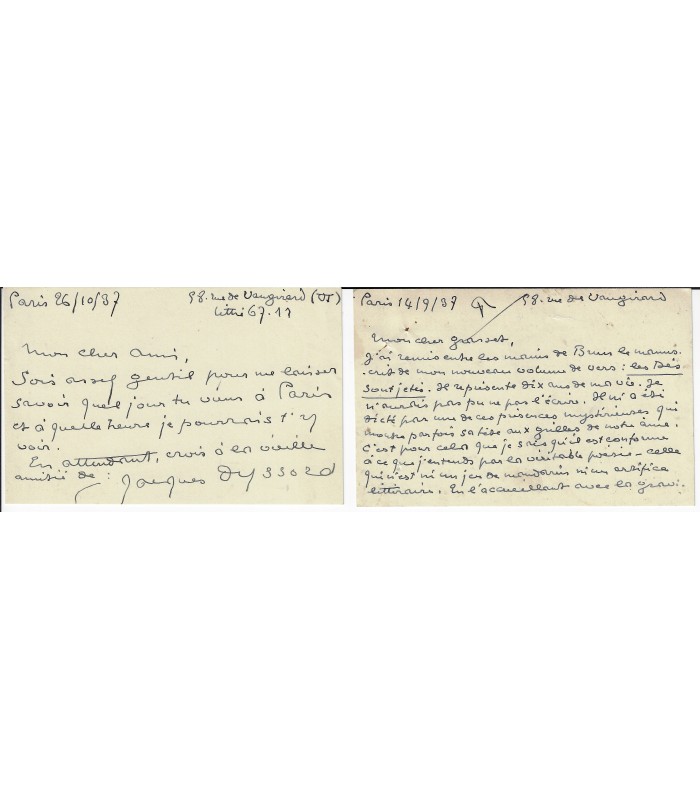 Paris 26/10/37
58. rue de Vaugirard (VI)
Littré 67-11
Mon cher ami,
Sois assez gentil pour me laisser
savoir quel jour tu viens à Paris
et à quelle heure je pourrais t'y
voir.
En attendant, crois à la vieille
amitié de :
Jacques Dyssord
Paris 14/9/37
58. rue de Vaugirard
Mon cher Grasset,
J'ai remis entre les mains de Brun le manus-
crit de mon nouveau volume de vers : les Dés
sont jetés. Il représente dix ans de ma vie. Je
n'aurais pas pu ne pas l'écrire. Il m'a été
dicté par une de ces présences mystérieuses qui
montre parfois sa tête aux grilles de notre âme.
C'est pour cela que je sais qu'il est conforme
à ce que j'entends par la véritable poésie - celle
qui n'est ni un jeu de mandarin ni un artifice
littéraire. En l'accueillant avec la gravi-